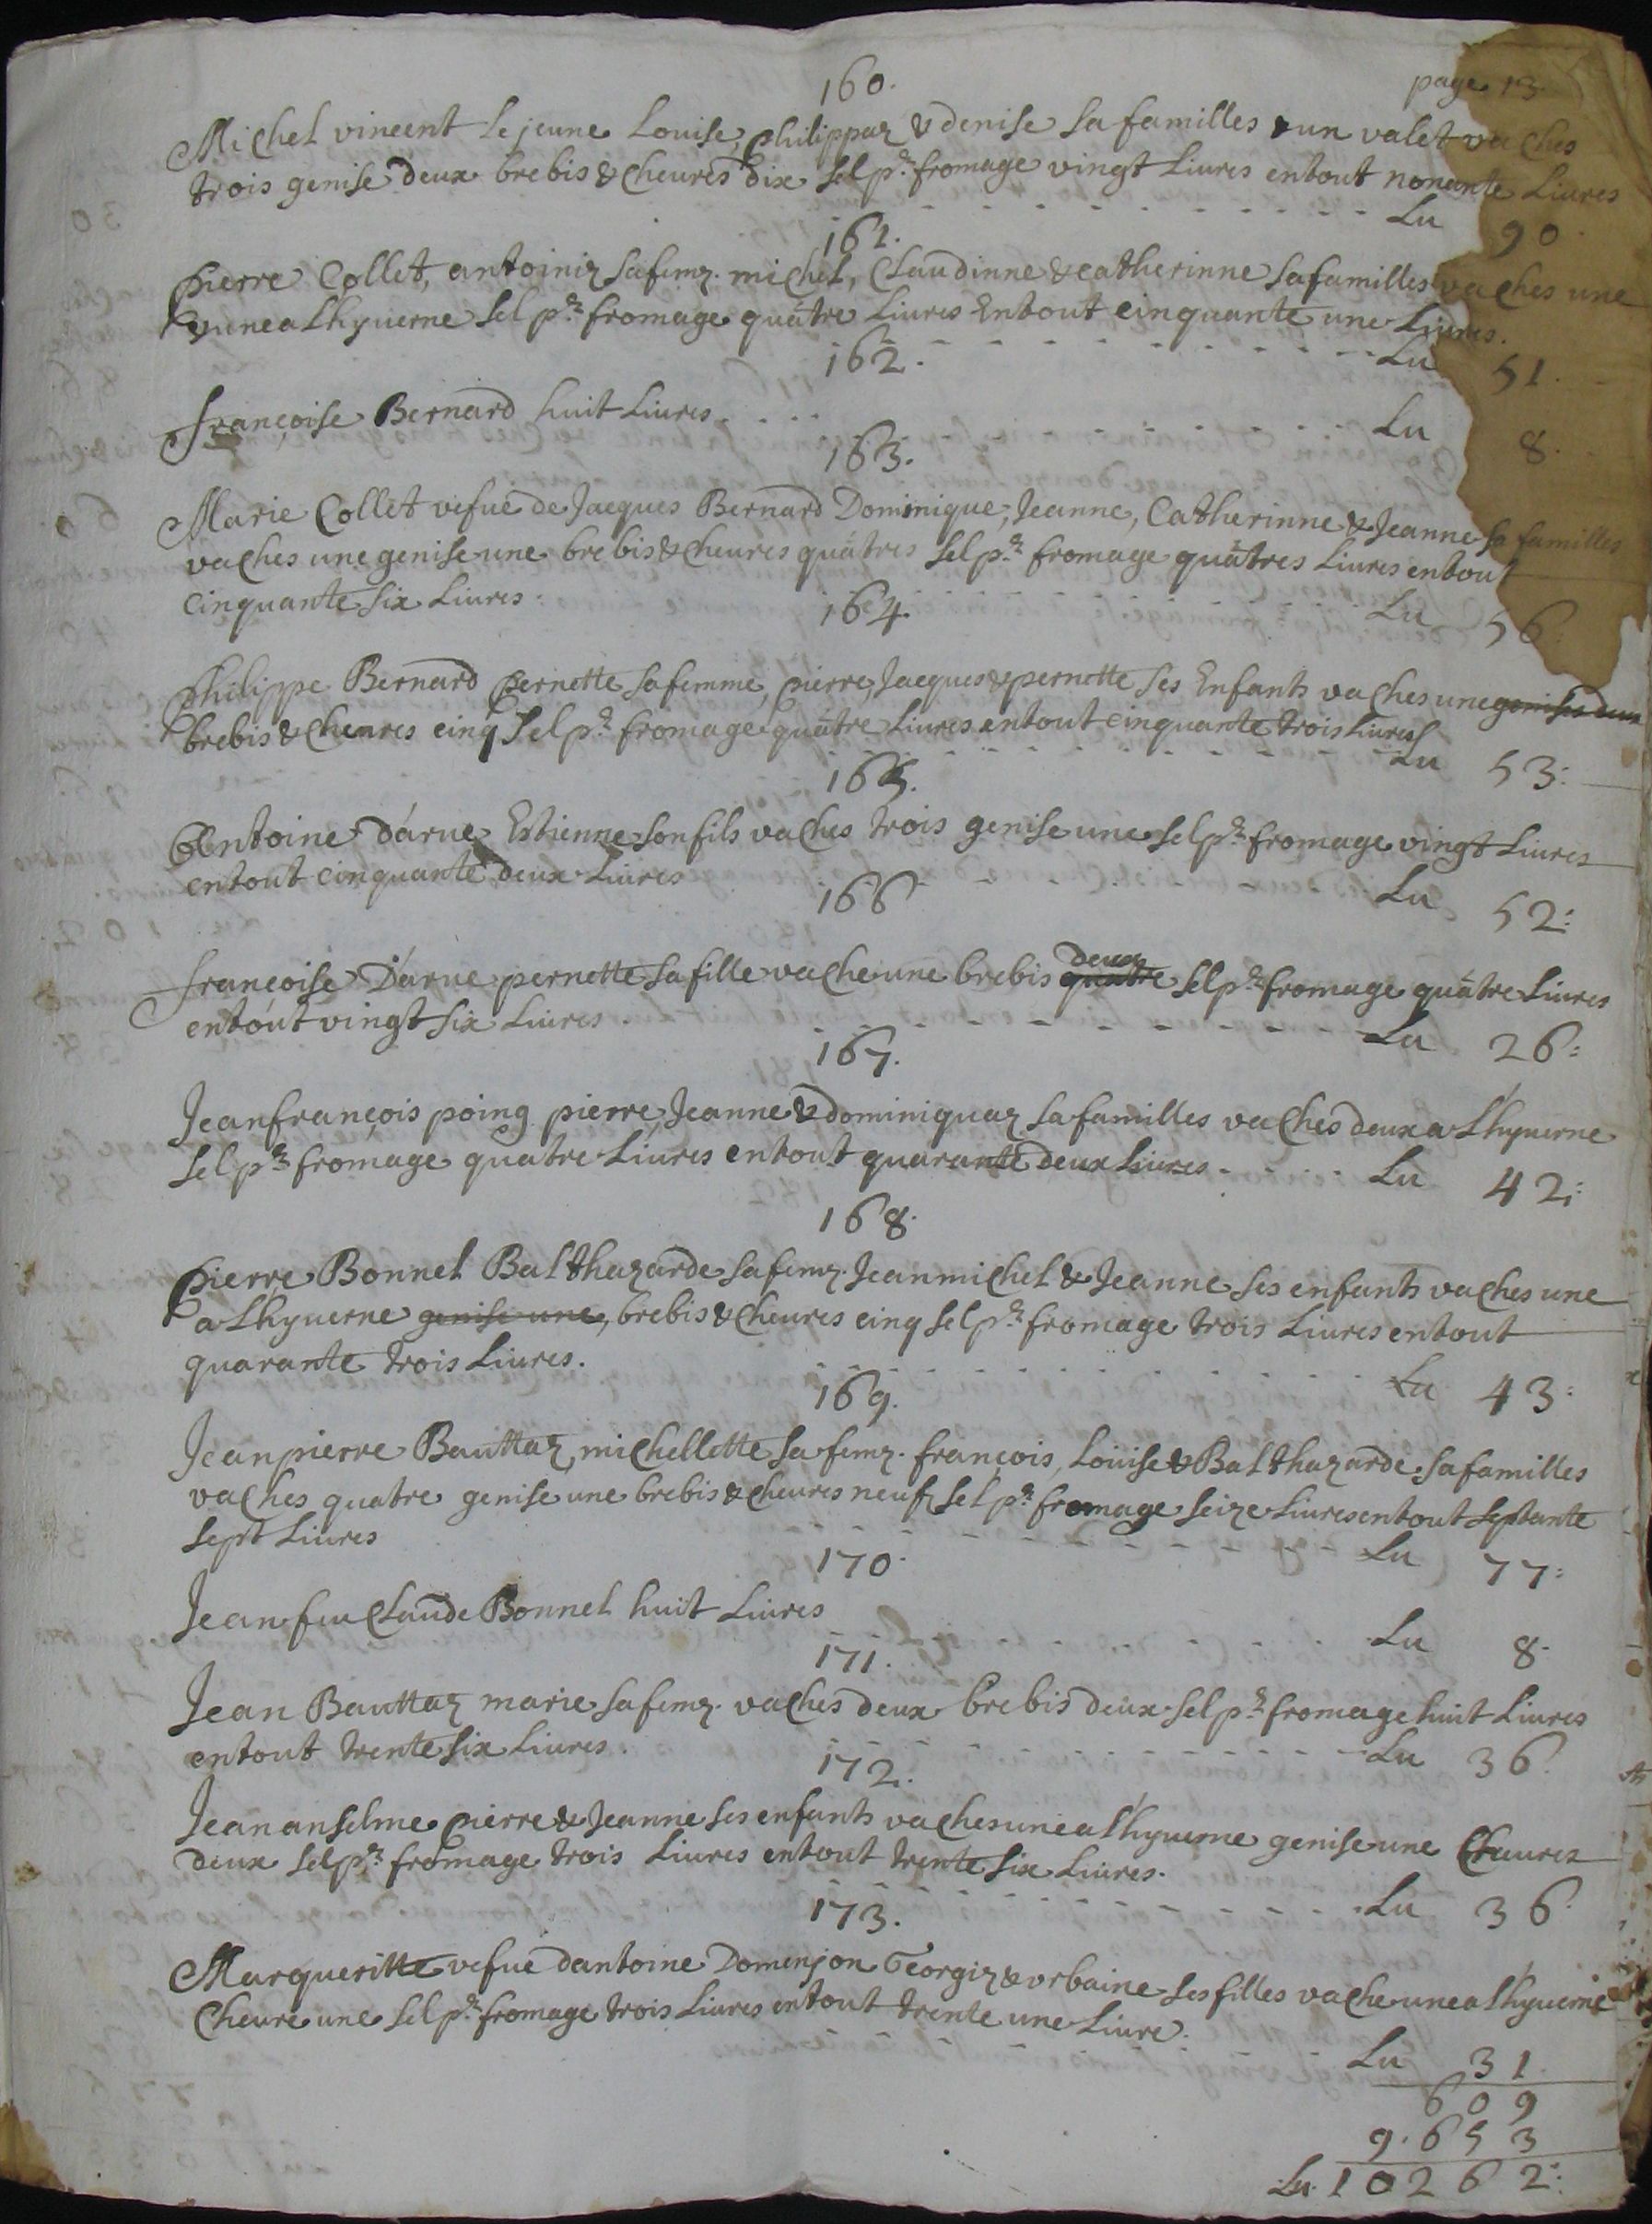 160. page 13.
Michel vincent le jeune Louise, philippaz & denise sa familles & un valet vaches
trois genise deux brebis & cheures dix sel pr. fromage vingt Liures entout nonante Liures
Lu 90.
161.
pierre Collet, antoiniz sa femz. michel, Claudinne & catherinne sa familles vaches une
& une a Lhyuerne sel pr. fromage quätre Liures Entout cinquante une Liures.
162. Lu 51.
françoise Bernard huit Liures. Lu 8.
163.
Marie Collet vefue de Jacques Bernard Dominique, Jeanne, Catherinne & Jeanne sa familles
vaches une genise une brebis & cheures quätres sel pr. fromage quätres Liures entout
cinquante six Liures. Lu 56:
164.
philippe Bernard pernette sa femme, pierre, Jacques & pernette ses Enfants vaches une genises deux
brebis & cheures cinq Sel pr. fromage quätre Liures entout cinquante trois Liures
Lu 53:
165.
Antoine dárue Estienne son fils vaches trois genise une sel pr. fromage vingt Liures
entout cinquante deux Liures Lu 52:
166
françoise Dárue pernette sa fille vache une brebis quatre deux sel pr. fromage quätre Liures
entout vingt six Liures. Lu 26:
167.
Jeanfrançois poing pierre, Jeanne & dominiquaz sa familles vaches deux a Lhyuerne
sel pr. fromage quätre Liures entout quarante deux Liures. Lu 42:
168.
pierre Bonnel Balthazarde sa femz. Jeanmichel & Jeanne ses enfants vaches une
a Lhyuerne genise une, brebis & cheures cinq sel pr. fromage trois Liures entout
quarante trois Liures. Lu 43:
169.
Jeanpierre Bauttaz, michellette sa femz. françois, Loüise & Balthazarde sa familles
vaches quatre genise une brebis & cheures neuf sel pr. fromage seize Liures entout septante
sept Liures Lu 77:
170.
Jean feu Claude Bonnel huit Liures Lu 8.
171.
Jean Bauttaz marie sa femz. vaches deux brebis deux sel pr. fromage huit Liures
entout trente six Liures. Lu 36.
172.
Jean anselme pierre & Jeanne ses enfants vaches une a Lhyuerne genise une Cheures
deux sel pr. fromage trois Liures entout trente six Liures.
Lu 36.
173.
Marqueritte vefue dantoine Domenjon Georgiz & vrbaine ses filles vache une a Lhyuerne
Cheure une sel pr. fromage trois Liures entout trente une Liure.
Lu 31.
609
9.653
Lu. 10262: